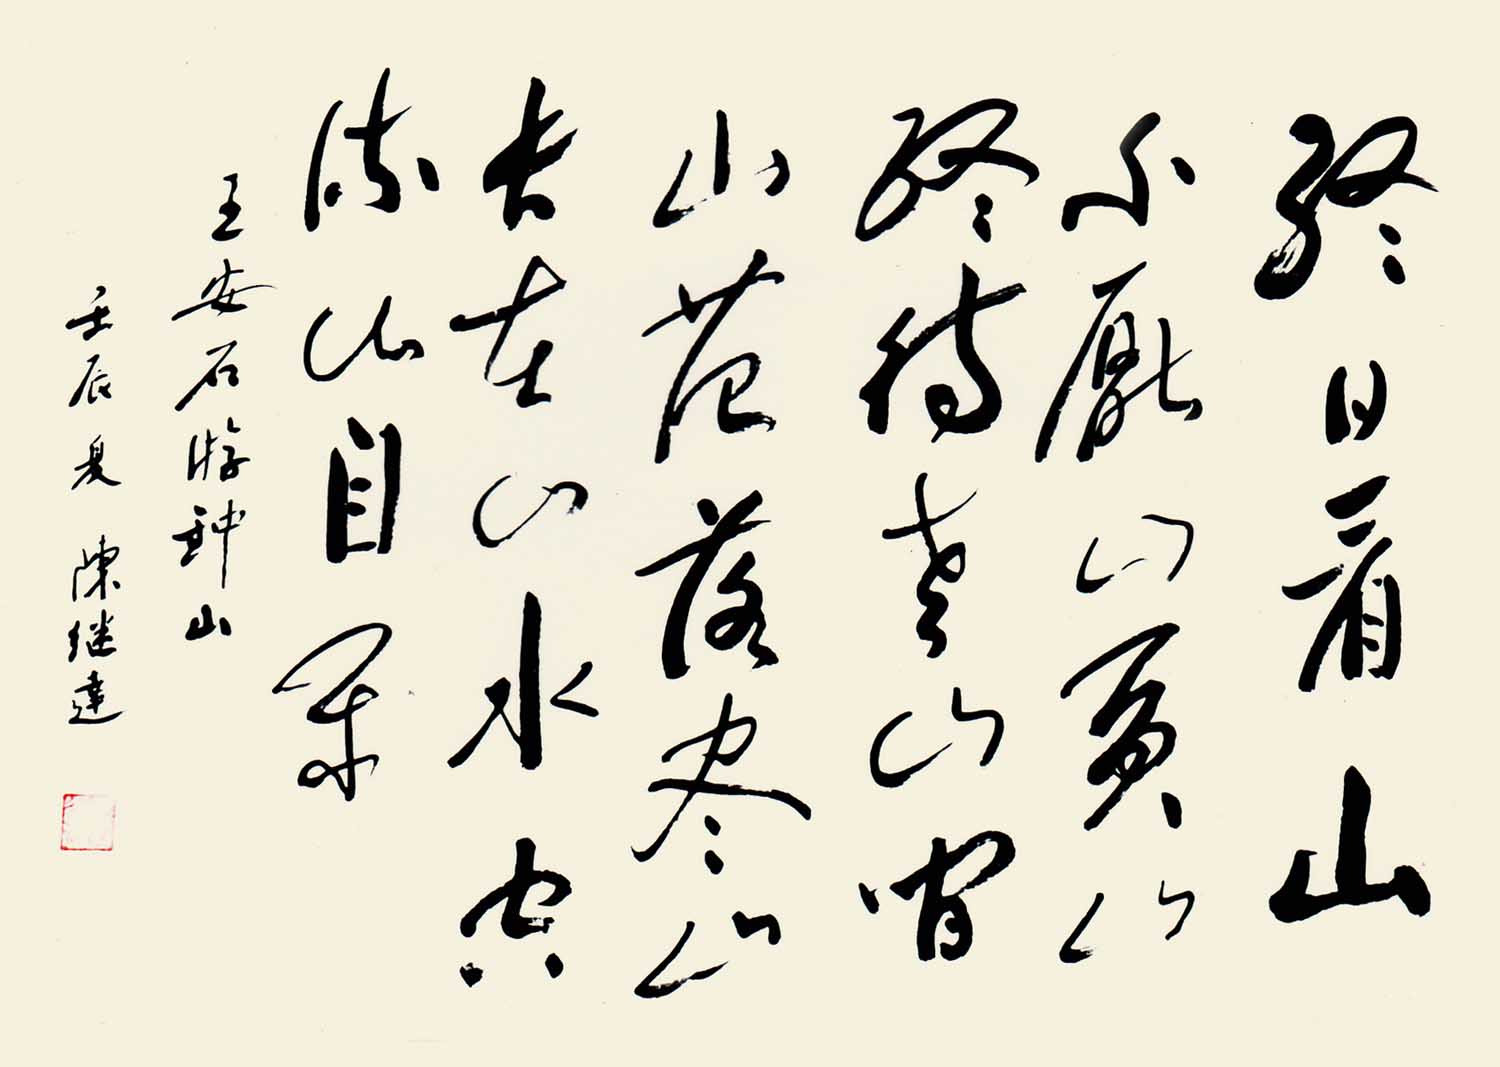 終日看山
不厭山買山
終待老山間
山花落尽山
長在山水空
流山自閒
王安石游钟山
壬辰夏 陳继達